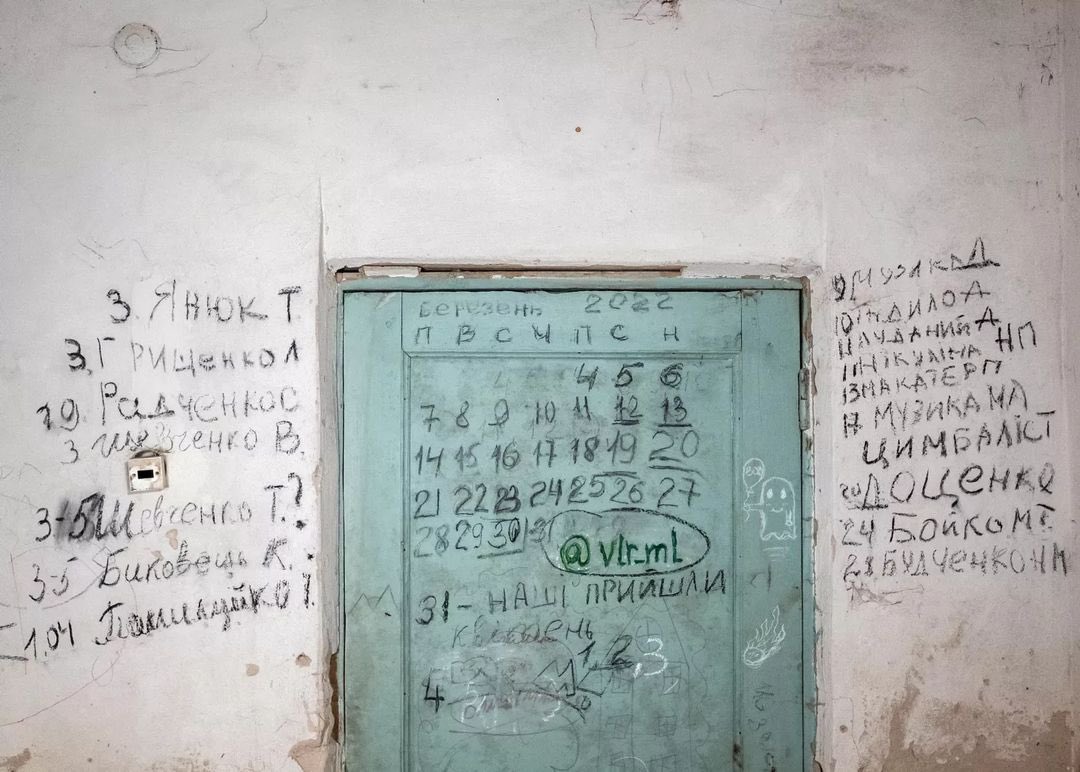 3. Янюк Т
3. Грищенко Л
19. Радченко С
3 Шевченко В.
3-5 Шевченко Т.?
3-5 Биковець К.
1.04
Березень 2022
П В С Ч П С Н
4 5 6
7 8 9 10 11 12 13
14 15 16 17 18 19 20
21 22 23 24 25 26 27
28 29 30 31
@vlr.ml
31 - НАШІ ПРИЙШЛИ
квітень
1, 2 3
4
9 МУЗИКА Д
10 ДИЛО Д
АУДАНИЙ А
НІКУЛІНА НП
13 МАКАТЕР П
17 МУЗИКА МА
ЦИМБАЛІСТ
20 ДОЦЕНКО
24 БОЙКО МГ
28 БУДЧЕНКО НМ